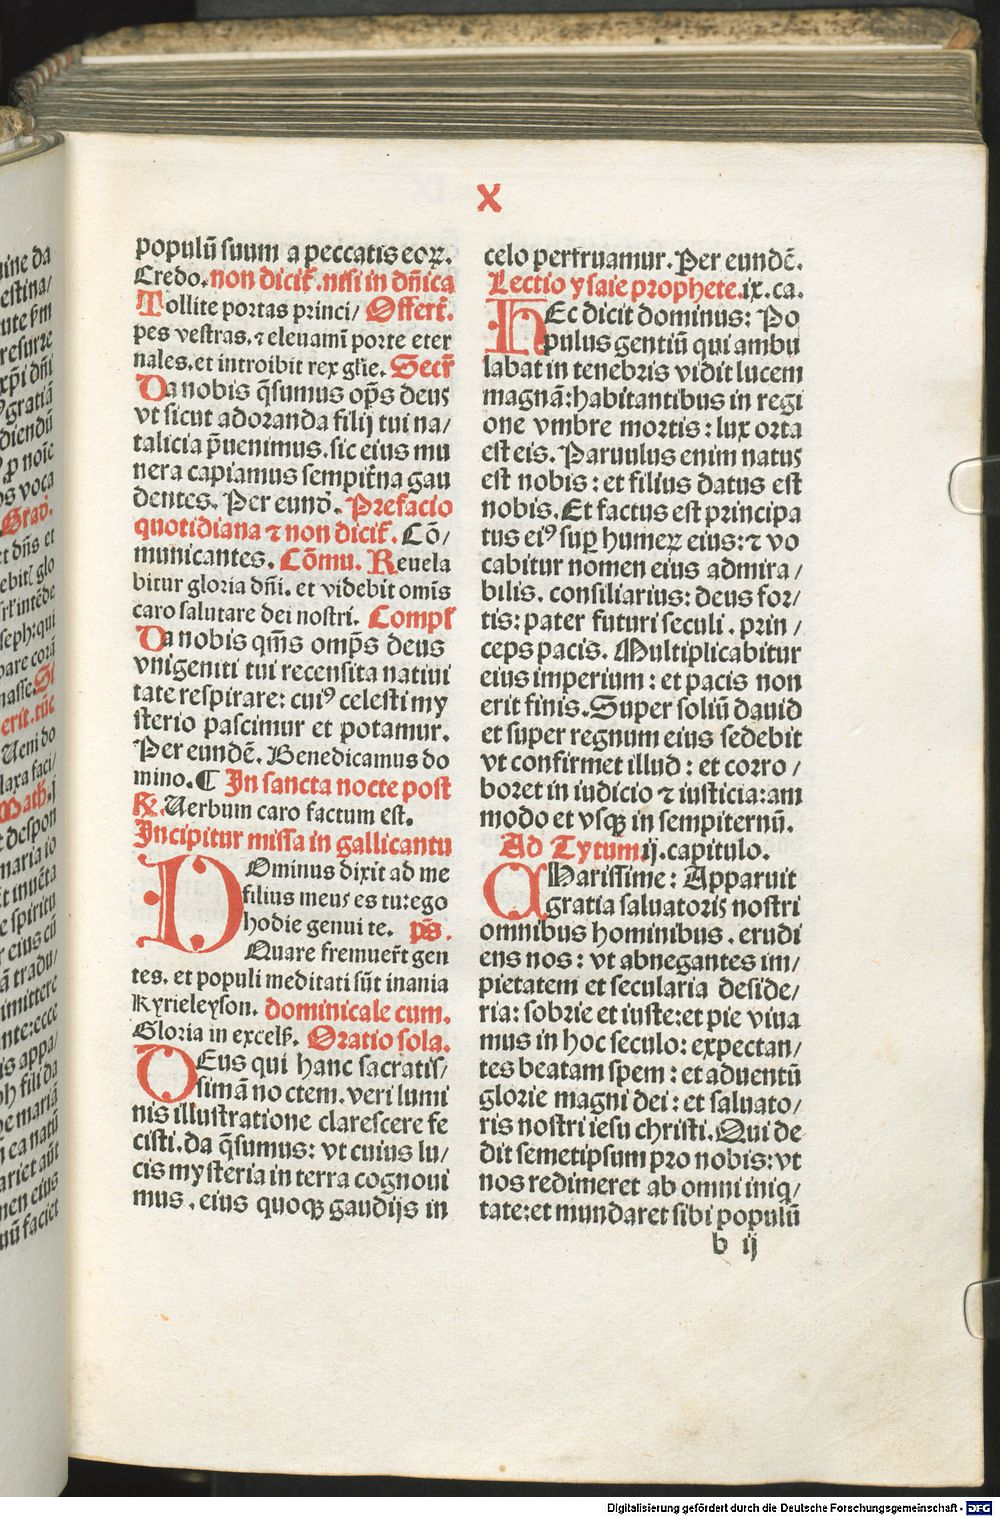 X
populū suum a peccatis eoꝝ.
Credo. non dicit̄. nisi in dn̄ica
Tollite portas princi/ Offert̄.
pes vestras. ⁊ eleuamī porte eter
nales. et introibit rex gl̄ie. Secr̄
Da nobis q̄sumus op̄s deus
vt sicut adoranda filij tui na/
talicia p̄uenimus. sic eius mu
nera capiamus sempit̄na gau
dentes. Per eund̄. Prefacio
quotidiana ⁊ non dicit̄. Cō/
municantes. Cōmu. Reuela
bitur gloria dn̄i. et videbit omīs
caro salutare dei nostri. Compl̄
Da nobis qm̄s omp̄s deus
vnigeniti tui recensita natiui
tate respirare: cuiꝰ celesti my
sterio pascimur et potamur.
Per eundē. Benedicamus do
mino. ¶ In sancta nocte post
℟. Uerbum caro factum est.
Incipitur missa in gallicantu
DOminus dixit ad me
filius meus es tu: ego
hodie genui te. ps̄.
Quare fremuer̄t gen
tes. et populi meditati sūt inania
Kyrieleyson. dominicale cum.
Gloria in excels̄. Oratio sola.
DEus qui hanc sacratis/
simā noctem. veri lumi
nis illustratione clarescere fe
cisti. da q̄sumus: vt cuius lu/
cis mysteria in terra cognoui
mus. eius quoqꝫ gaudijs in
celo perfruamur. Per eundē.
Lectio ysaie prophete. ix. ca.
HEc dicit dominus: Po
pulus gentiū qui ambu
labat in tenebris vidit lucem
magnā: habitantibus in regi
one vmbre mortis: lux orta
est eis. Paruulus enim natus
est nobis: et filius datus est
nobis. Et factus est principa
tus eiꝰ suꝑ humeꝝ eius: ⁊ vo
cabitur nomen eius admira/
bilis. consiliarius: deus for/
tis: pater futuri seculi. prin/
ceps pacis. Multiplicabitur
eius imperium: et pacis non
erit finis. Super soliū dauid
et super regnum eius sedebit
vt confirmet illud: et corro/
boret in iudicio ⁊ iusticia: am
modo et vsqꝫ in sempiternū.
Ad Tytum. ij. capitulo.
CHarissime: Apparuit
gratia saluatoris nostri
omnibus hominibus. erudi
ens nos: vt abnegantes im/
pietatem et secularia deside/
ria: sobrie et iuste: et pie viua
mus in hoc seculo: expectan/
tes beatam spem: et aduentū
glorie magni dei: et saluato/
ris nostri iesu christi. Qui de
dit semetipsum pro nobis: vt
nos redimeret ab omni iniq̄/
tate: et mundaret sibi populū
b ij
Digitalisierung gefördert durch die Deutsche Forschungsgemeinschaft - DFG